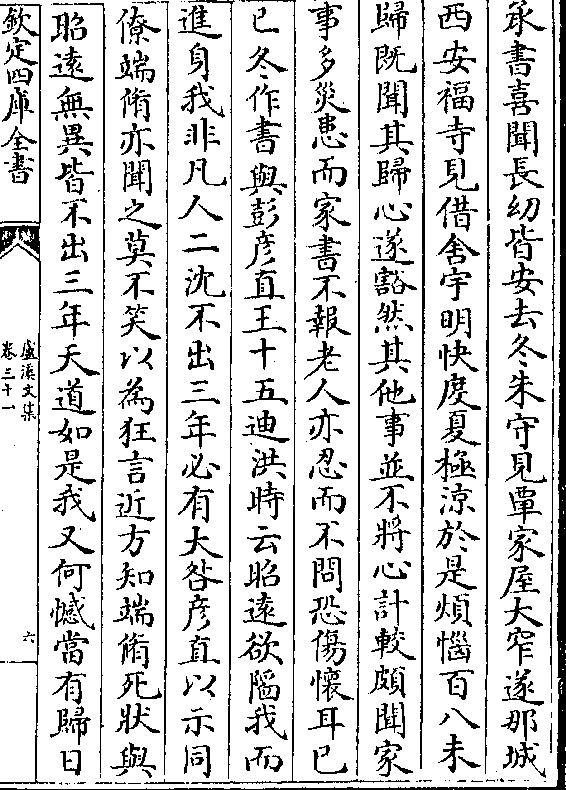 承書喜聞長㓜皆安去冬朱守見覃家屋大窄遂那城
西安福寺見借舍宇明快度夏極涼於是煩惱百八未
歸既聞其歸心遂豁然其他事並不將心計較頗聞家
事多災患而家書不報老人亦忍而不問恐傷懷耳已
已冬作書與彭彦直王十五迪洪時云昭遠欲陥我而
進身我非凡人二沈不出三年必有大咎彦直以示同
僚端脩亦聞之莫不笑以為狂言近方知端脩死狀與
昭遠無異皆不出三年天道如是我又何憾當有歸日
欽定四庫全書
盧溪文集
卷三十一
六